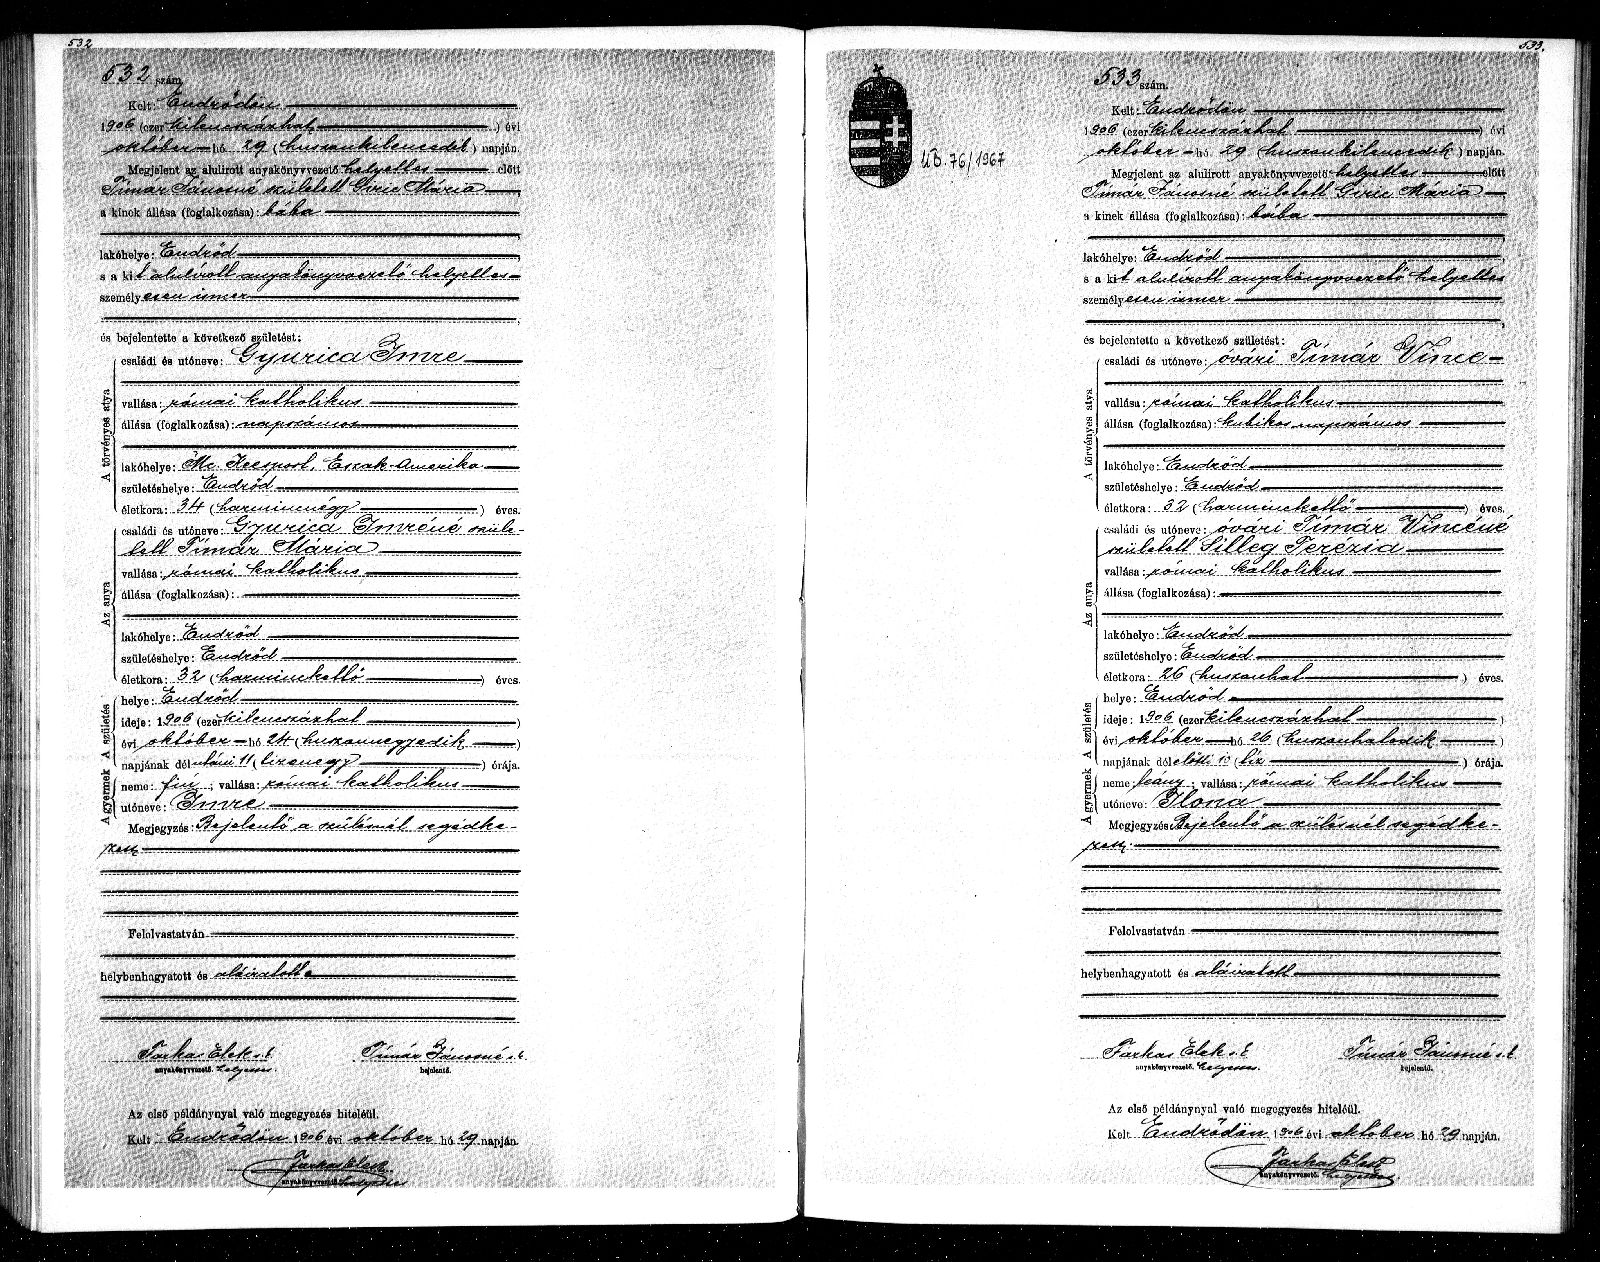 532
532 szám
Kelt: Endrődön
1906 (ezer kilencszázhat) évi
október hó 29 (huszonkilencedik) napján.
Megjelent az alulirott anyakönyvvezető helyettes előtt
Tímár Jánosné született Giric Mária,
a kinek állása (foglalkozása): bába
lakóhelye: Endrőd
s a kit alulírott anyakönyvvezető helyettes
személyesen ismer
és bejelentette a következő születést:
A törvényes atya
családi és utóneve: Gyurica Imre
vallása: római katholikus
állása (foglalkozása): napszámos
lakóhelye: Mc. Keesport, Eszak-Amerika
születéshelye: Endrőd
életkora: 34 (harmincnégy) éves.
Az anya
családi és utóneve: Gyurica Imréné szüle-
tett Tímár Mária
vallása: római katholikus
állása (foglalkozása):
lakóhelye: Endrőd
születéshelye: Endrőd
életkora: 32 (harminckettő) éves.
A gyermek A születés
helye: Endrőd
ideje: 1906 (ezer kilencszázhat)
évi október hó 24 (huszonnegyedik)
napjának délutáni 11 (tizenegy) órája.
neme: fiú; vallása: római katholikus
utóneve: Imre
Megjegyzés: Bejelentő a szülésnél segédke-
zett
Felolvastatván
helybenhagyatott és aláiratott.
Farkas Elek s.k.
anyakönyvvezető. helyettes
Tímár Jánosné s.k.
bejelentő.
Az első példánynyal való megegyezés hiteléül.
Kelt Endrődön 1906 évi október hó 29 napján.
Farkas Elek
anyakönyvvezető helyettes
533.
ÚB. 76/1967
533 szám.
Kelt: Endrődön
1906 (ezer kilencszázhat) évi
október hó 29 (huszonkilencedik) napján.
Megjelent az alulirott anyakönyvvezető helyettes előtt
Tímár Jánosné született Giric Mária,
a kinek állása (foglalkozása): bába
lakóhelye: Endrőd
s a kit alulírott anyakönyvvezető helyettes
személyesen ismer
és bejelentette a következő születést:
A törvényes atya
családi és utóneve: óvári Tímár Vince
vallása: római katholikus
állása (foglalkozása): kubikos napszámos
lakóhelye: Endrőd
születéshelye: Endrőd
életkora: 32 (harminckettő) éves.
Az anya
családi és utóneve: óvári Tímár Vincéné
született Silleg Terézia
vallása: római katholikus
állása (foglalkozása):
lakóhelye: Endrőd
születéshelye: Endrőd
életkora: 26 (huszonhat) éves.
A gyermek A születés
helye: Endrőd
ideje: 1906 (ezer kilencszázhat)
évi október hó 26 (huszonhatodik)
napjának délelőtti 10 (tíz) órája.
neme: leány; vallása: római katholikus
utóneve: Ilona
Megjegyzés: Bejelentő a szülésnél segédke-
zett.
Felolvastatván
helybenhagyatott és aláiratott
Farkas Elek s.k.
anyakönyvvezető. helyettes
Tímár Jánosné s.k.
bejelentő.
Az első példánynyal való megegyezés hiteléül.
Kelt Endrődön 1906 évi október hó 29 napján.
Farkas Elek
anyakönyvvezető. helyettes